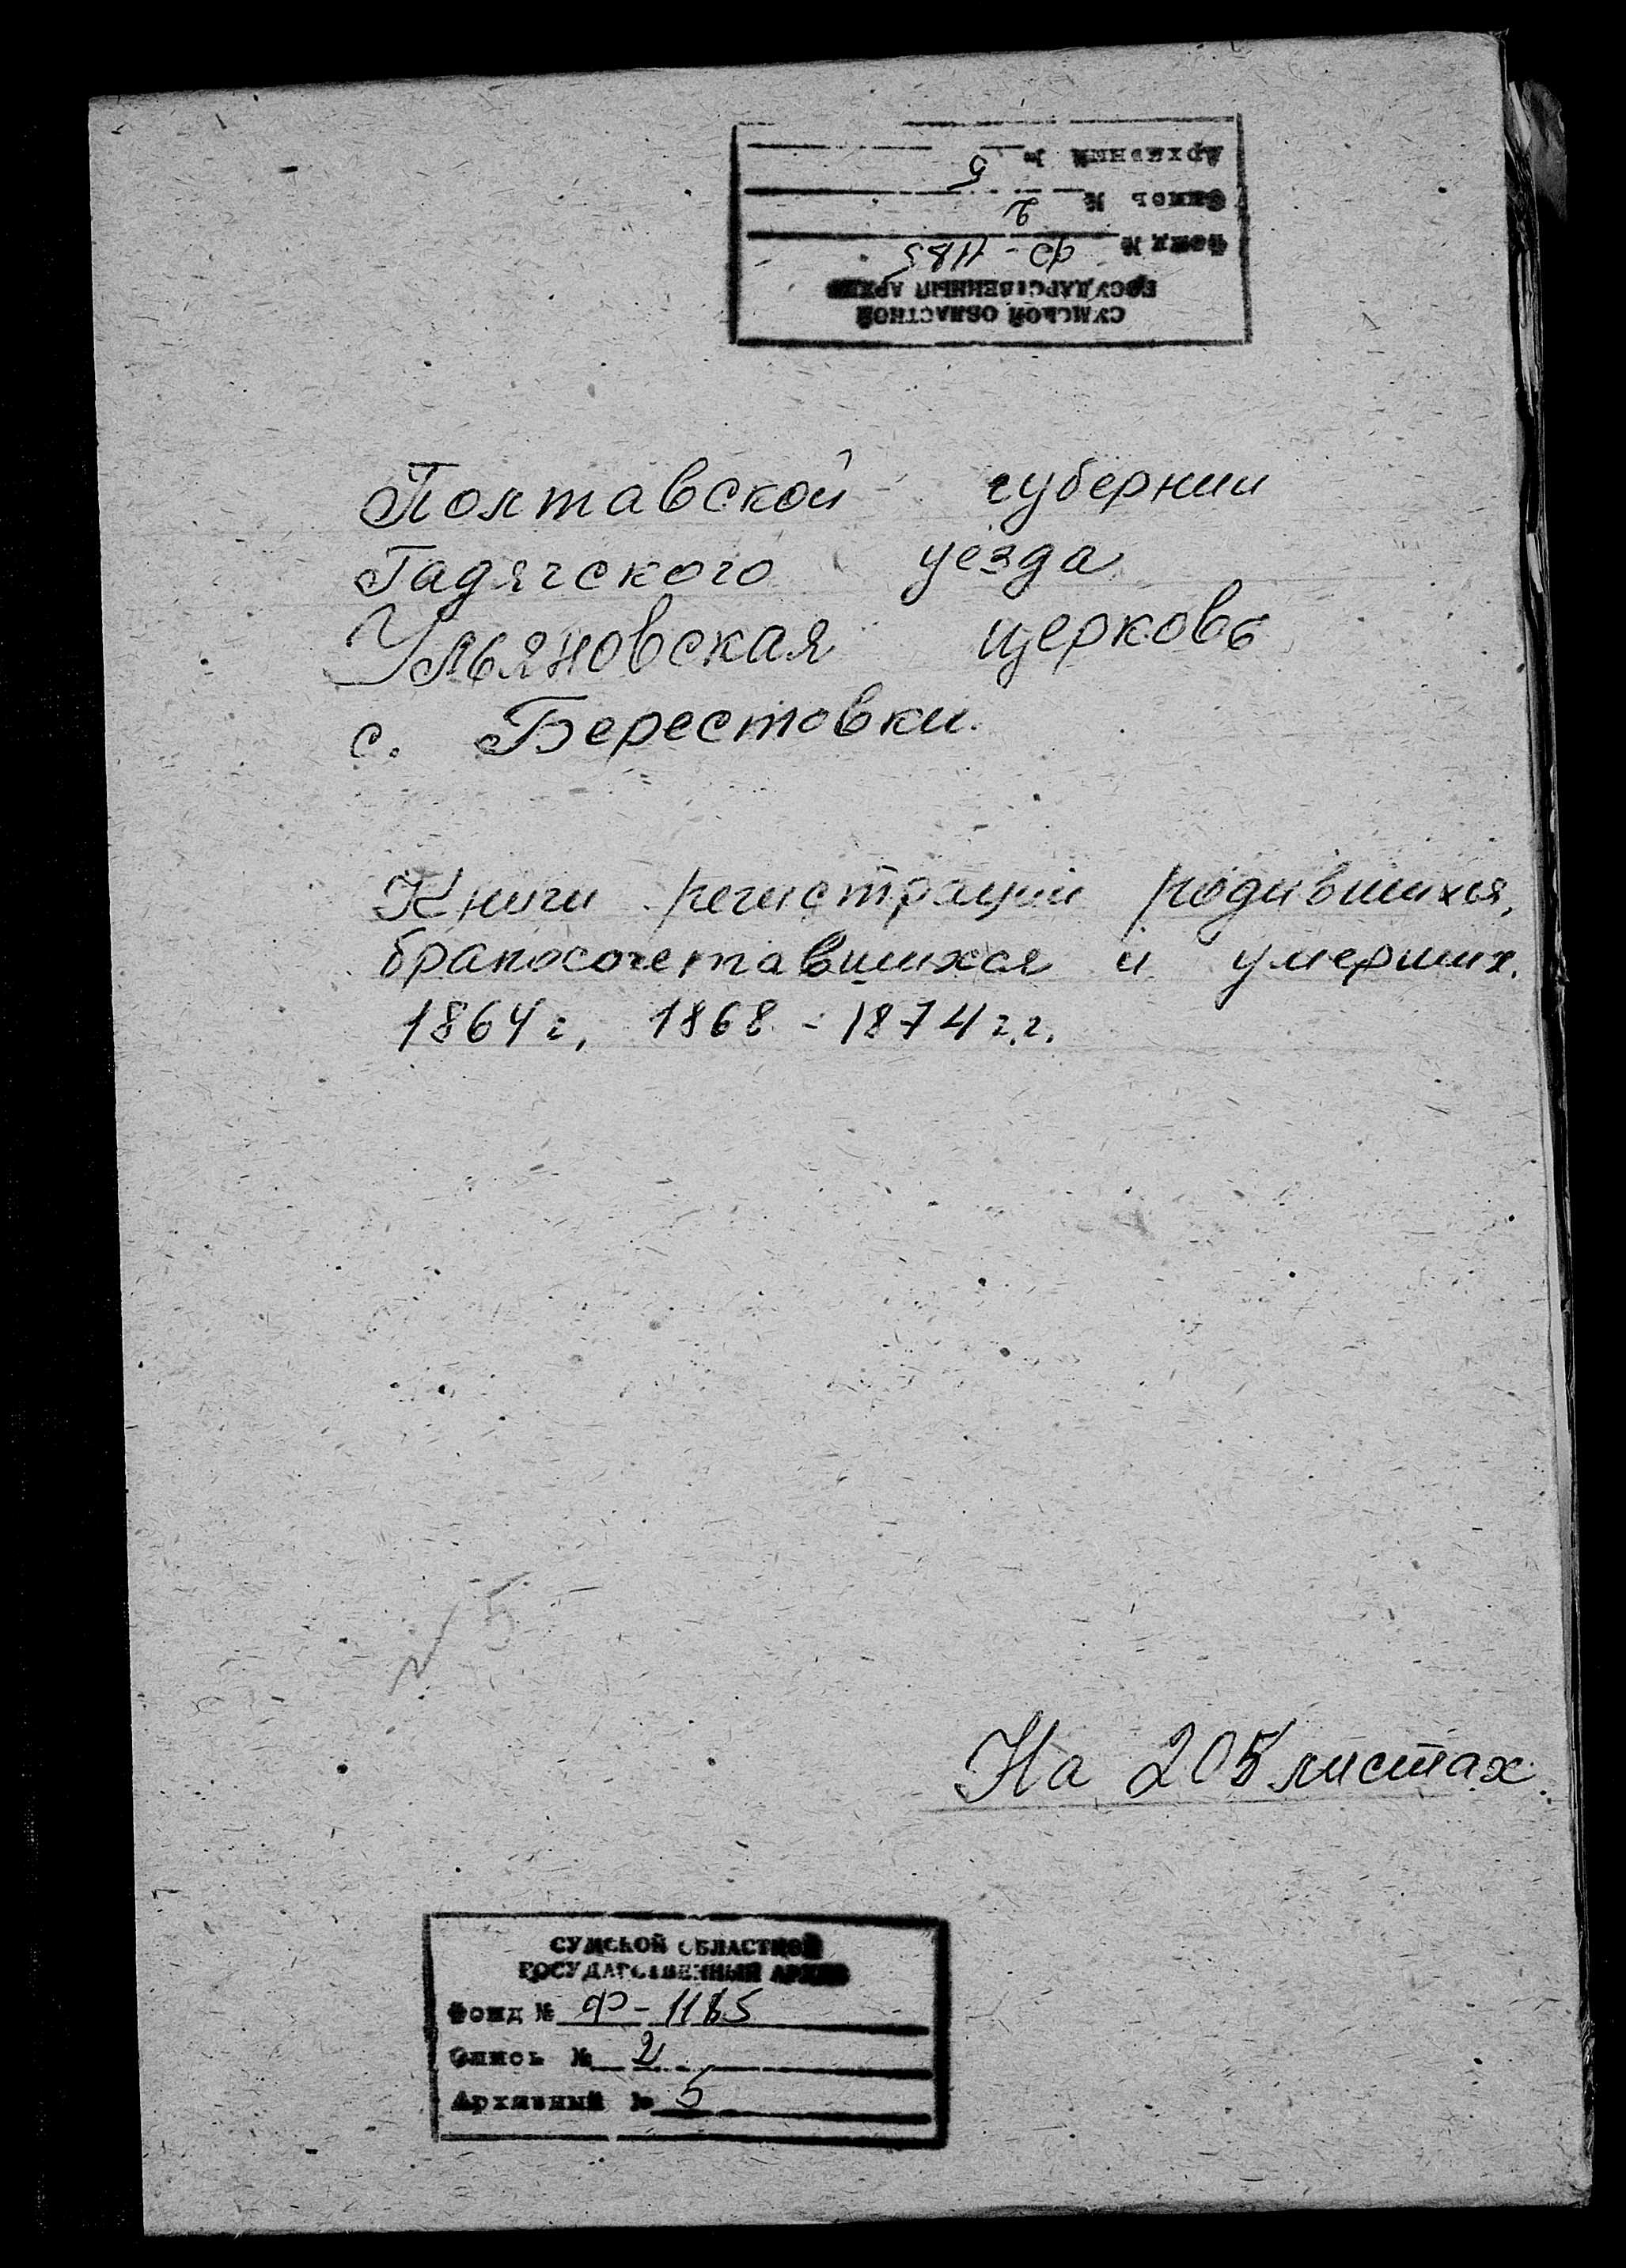 СУМСКОЙ ОБЛАСТНОЙ
ГОСУДАРСТВЕННЫЙ АРХИВ
Фонд № Ф-1185
Опись № 2
Архивный № 5
Полтавской губернии
Гадячского уезда
Ульяновская церковь
с. Берестовки.
Книги регистрации родившихся,
бракосочетавшихся и умерших.
1864 г., 1868 - 1874 г.г.
№ 5
На 205 листах.
СУМСКОЙ ОБЛАСТНОЙ
ГОСУДАРСТВЕННЫЙ АРХИВ
Фонд № Ф-1185
Опись № 2
Архивный № 5